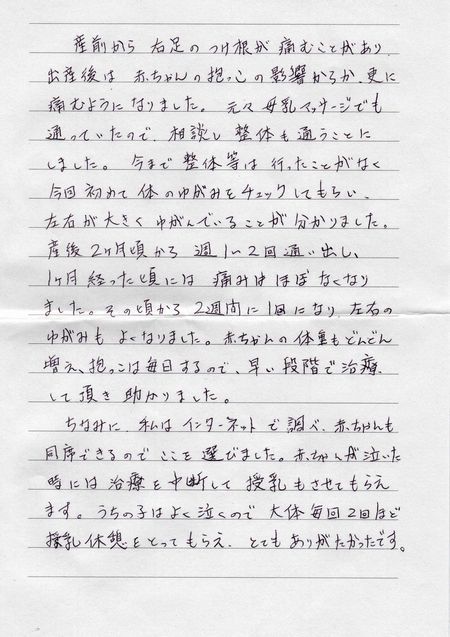 産前から 右足のつけ根が 痛むことがあり
出産後は 赤ちゃんの抱っこの影響からか、更に
痛むようになりました。 元々 母乳マッサージでも
通っていたので、相談し 整体も通うことに
しました。 今まで 整体等は 行ったことがなく
今回 初めて 体のゆがみをチェックしてもらい、
左右が大きく ゆがんでいることが分かりました。
産後 2ヶ月頃から 週1〜2回通い出し、
1ヶ月 経った頃には 痛みはほぼなくなり
ました。その頃から 2週間に1回になり、左右の
ゆがみも よくなりました。赤ちゃんの体重もどんどん
増え、抱っこは毎日するので、早い段階で治療
して頂き 助かりました。
ちなみに、私は インターネットで調べ、赤ちゃんも
同席できるので ここを選びました。赤ちゃんが泣いた
時には 治療を中断して 授乳もさせてもらえ
ます。うちの子はよく泣くので 大体毎回2回ほど
授乳休憩をとってもらえ、とてもありがたかったです。